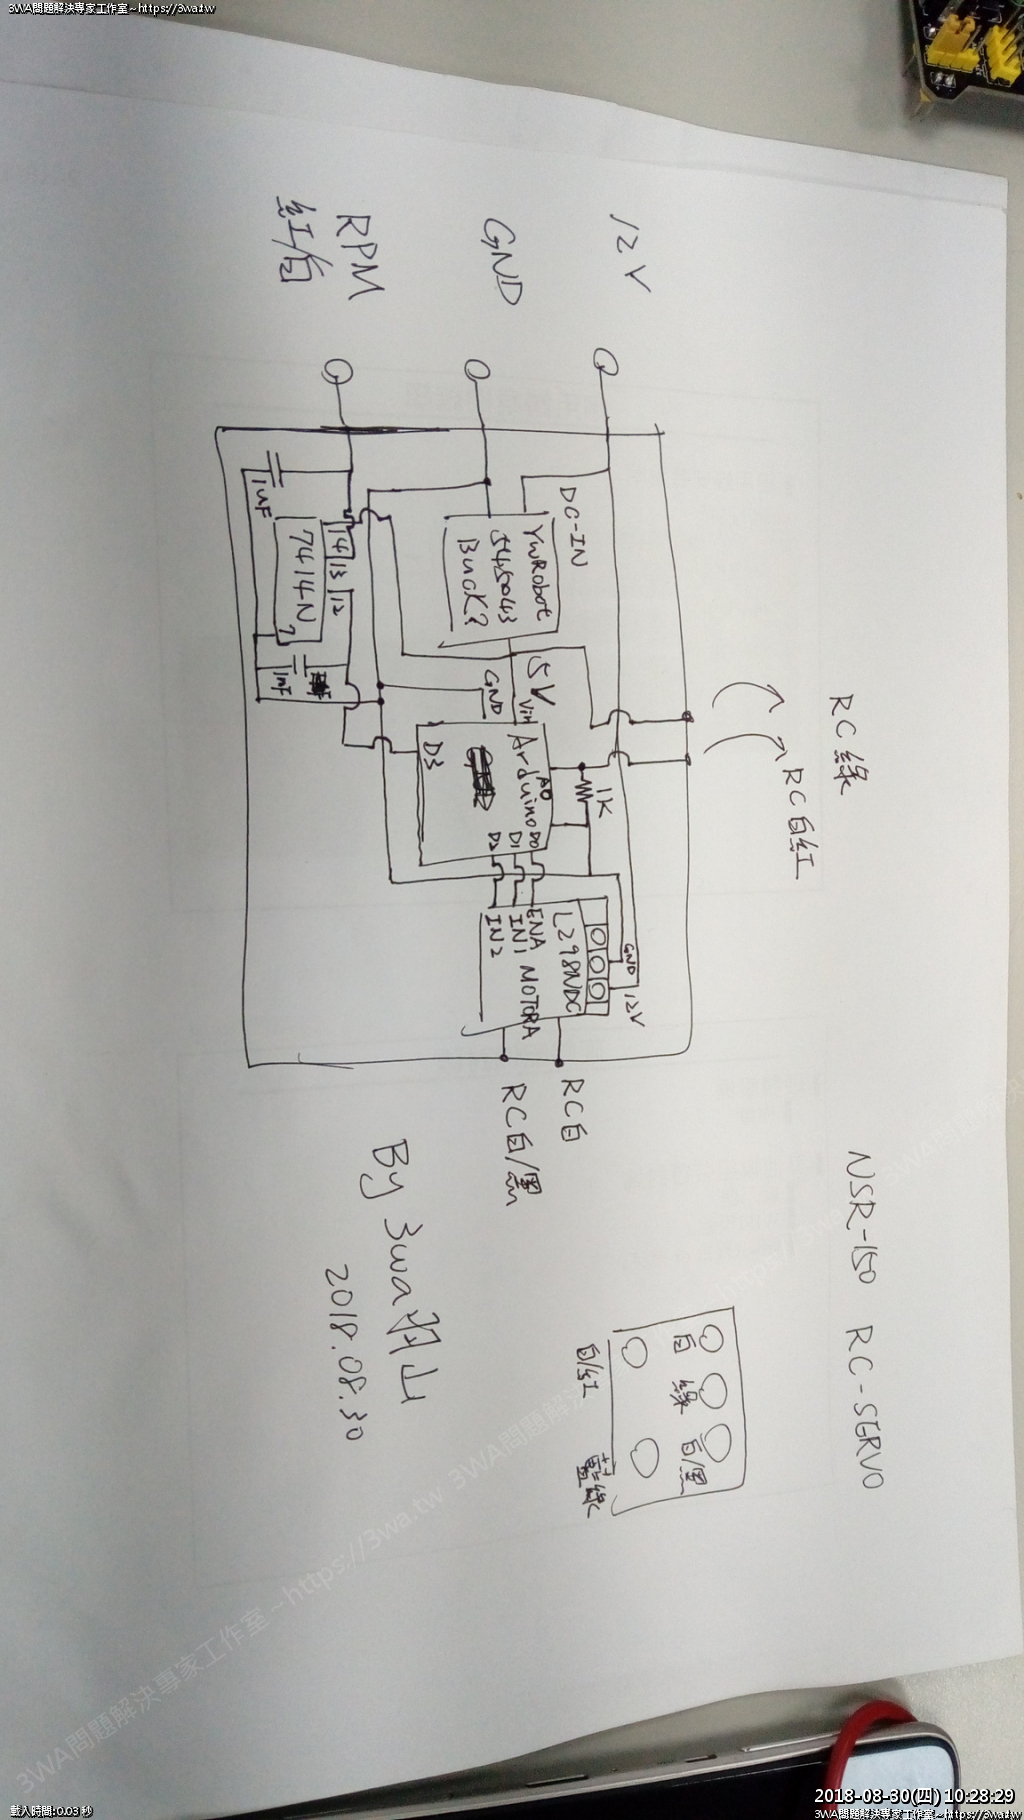 3WA問題解決專家工作室~https://3wa.tw
12V
GND
RPM
紅/白
DC-IN
YwRobot
545043
Buck?
5V
GND
Vin
Arduino
A0
D0
D1
D2
D3
1K
1uF
14 13 12
7414N
7
1nF
L298NDC
ENA MOTORA
IN1
IN2
GND
12V
RC綠
RC白紅
RC白
RC白/黑
NSR-150 RC-SERVO
白 綠 白/黑
白/紅
By 3wa羽山
2018.08.30
3WA問題解決專家工作室~https://3wa.tw
載入時間:0.03 秒
2018-08-30(四) 10:28:29
3WA問題解決專家工作室~https://3wa.tw